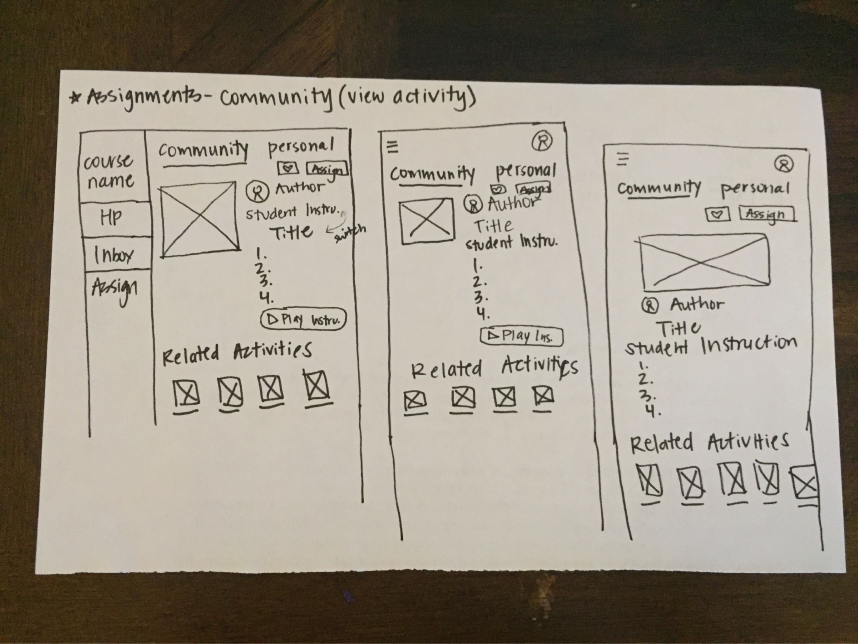 * Assignments - Community (view activity)
course name
HP
Inbox
Assign
Community personal
Assign
R Author
Student Instru.
Title switch
1.
2.
3.
4.
Play Instru.
Related Activities
R
Community personal
Assign
R Author
Title
Student Instru.
1.
2.
3.
4.
Play Ins.
Related Activities
R
Community personal
Assign
R Author
Title
Student Instruction
1.
2.
3.
4.
Related Activities